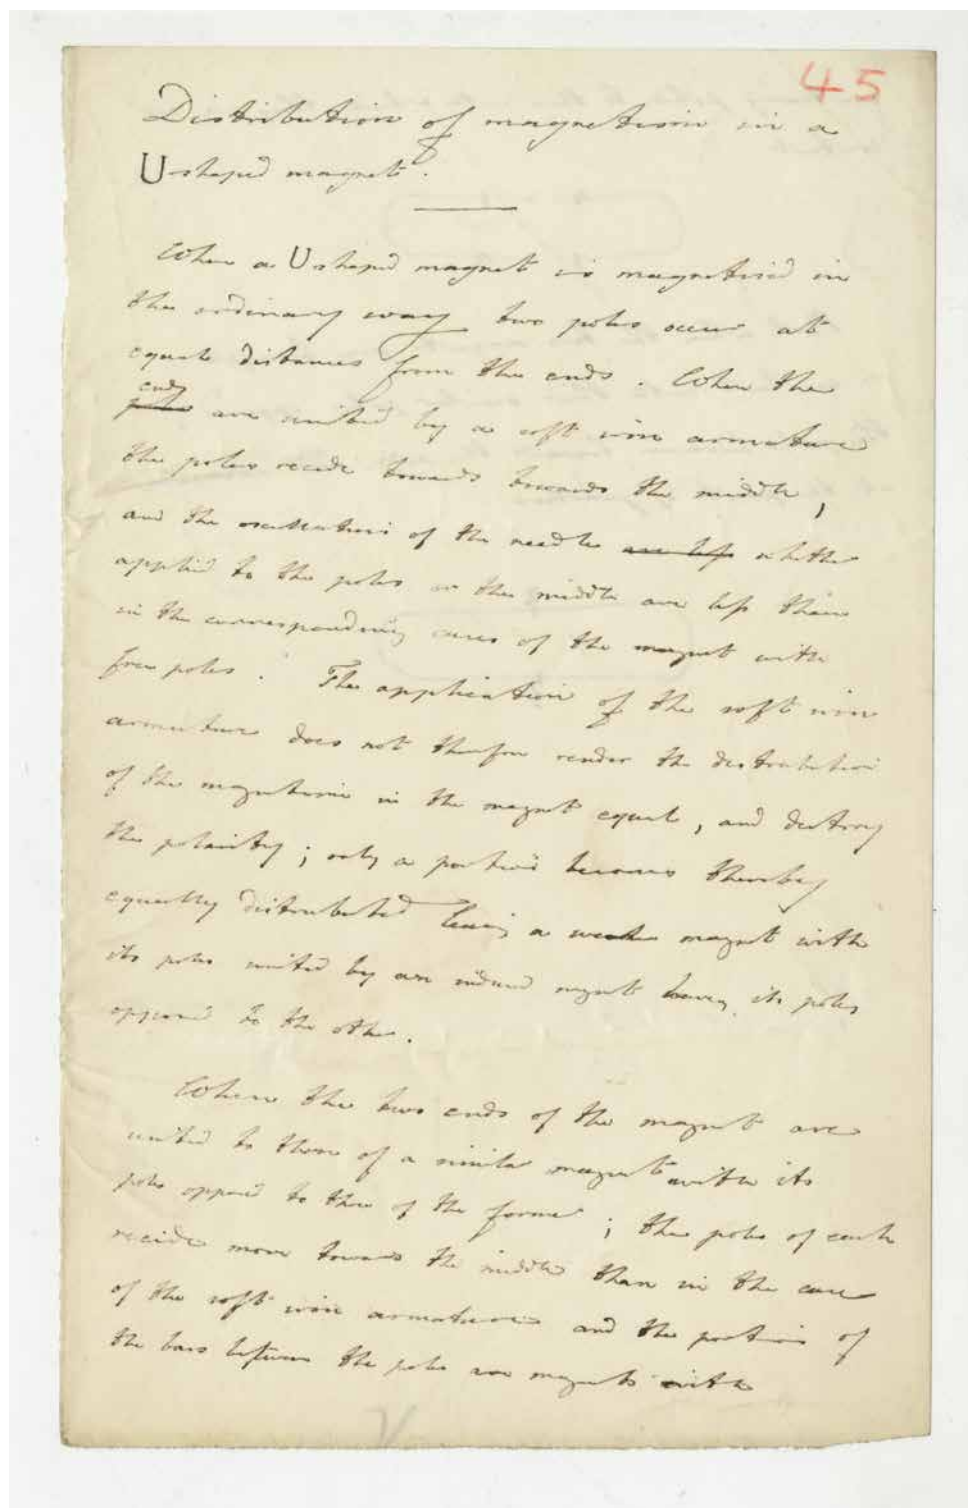 45
Distribution of magnetism in a
U-shaped magnet.
When a U shaped magnet is magnetised in
the ordinary way two poles occur at
equal distances from the ends. When the
ends
poles are united by a soft iron armature
the poles recede towards towards the middle,
and the oscillations of the needle are less whether
applied to the poles or the middle are less than
in the corresponding cases of the magnet with
free poles. The application of the soft iron
armature does not therefore render the distribution
of the magnetism in the magnet equal, and destroy
the polarity; only a portion becomes thereby
equally distributed leaving a weaker magnet with
its poles united by an induced magnet having its poles
opposed to the other.
When the two ends of the magnet are
united to those of a similar magnet with its
poles opposed to those of the former; the poles of each
recede more towards the middle than in the case
of the soft iron armature and the portions of
the bars between the poles are magnets with